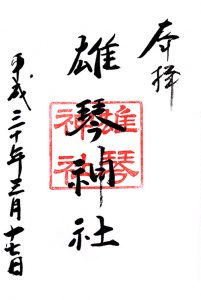 奉拝
雄琴神社
雄琴
神社
平成三十年三月十七日